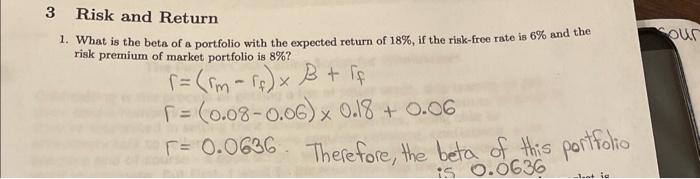 3 Risk and Return
1. What is the beta of a portfolio with the expected return of 18%, if the risk-free rate is 6% and the
risk premium of market portfolio is 8%?
r = (rm - rf) x β + rf
r = (0.08-0.06) x 0.18 + 0.06
r = 0.0636. Therefore, the beta of this portfolio
is 0.0636